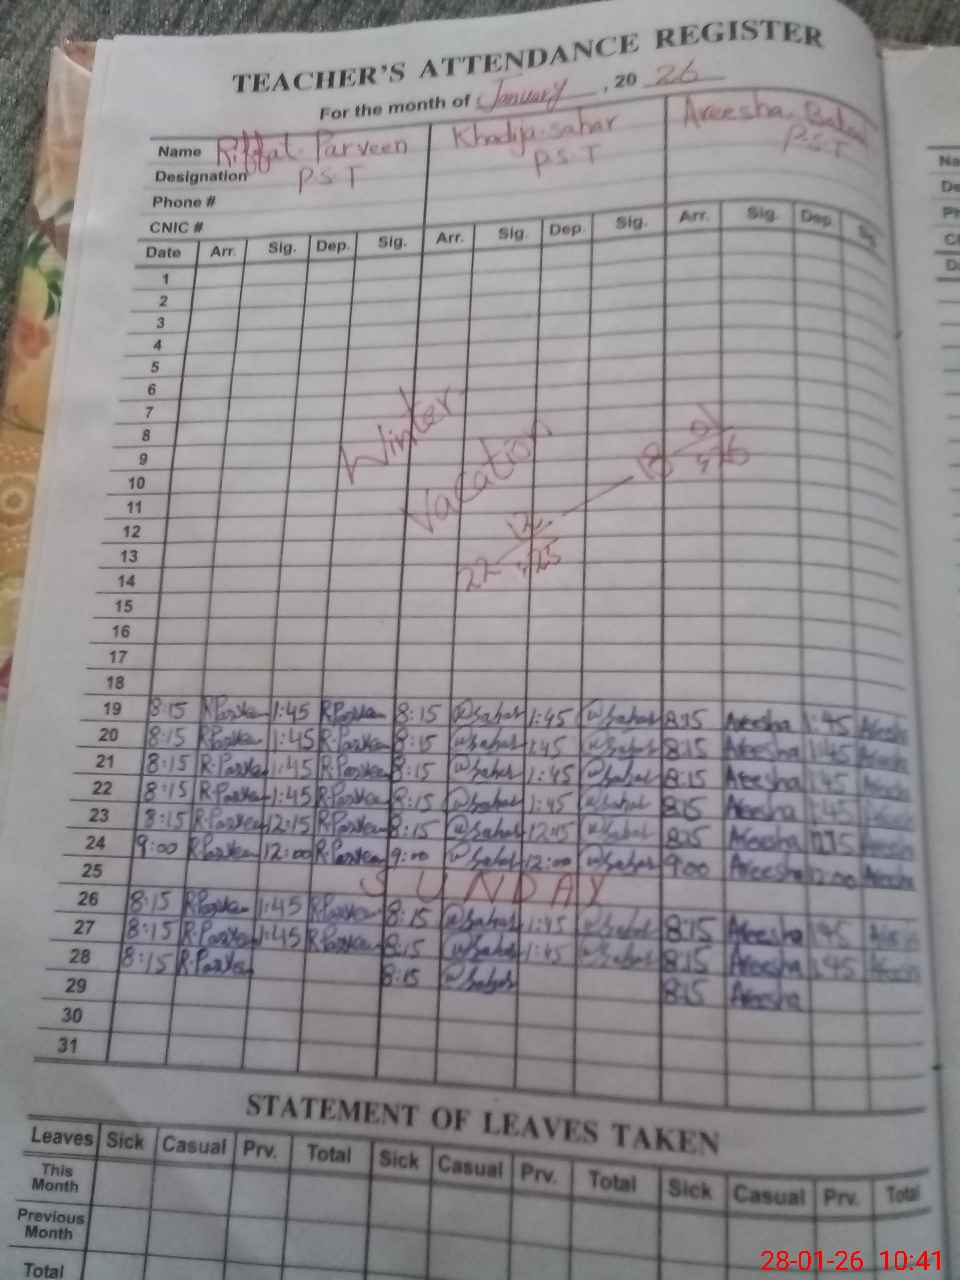 TEACHER'S ATTENDANCE REGISTER
For the month of January, 20 26
Name Riffat Parveen Khadija sahar Areesha
Designation P.S.T P.S.T P.S.T
Phone #
CNIC #
Date Arr. Sig. Dep. Sig. Arr. Sig. Dep. Sig. Arr. Sig. Dep.
1
2
3
4
5
6
7
8
9
10
11
12
13
14
15
16
17
18
Winter
Vacation
22 12 25 — 18
19 8:15 R.Parveen 1:45 R.Parveen 8:15 @sahar 1:45 @sahar 8:15 Areesha 1:45 Areesha
20 8:15 R.Parveen 1:45 R.Parveen 8:15 @sahar 1:45 @sahar 8:15 Areesha 1:45 Areesha
21 8:15 R.Parveen 1:45 R.Parveen 8:15 @sahar 1:45 @sahar 8:15 Areesha 1:45 Areesha
22 8:15 R.Parveen 1:45 R.Parveen 8:15 @sahar 1:45 @sahar 8:15 Areesha 1:45
23 8:15 R.Parveen 12:15 R.Parveen 8:15 @sahar @sahar 8:15 Areesha Areesha
24 9:00 R.Parveen 12:00 R.Parveen 9:00 @sahar 12:00 @sahar 9:00 Areesha 12:00 Areesha
25 SUNDAY
26 8:15 R.Parveen 1:45 R.Parveen 8:15 @sahar 1:45 @sahar 8:15 Areesha 1:45
27 8:15 R.Parveen 1:45 R.Parveen 8:15 @sahar 1:45 @sahar 8:15 Areesha 1:45 Areesha
28 8:15 R.Parveen 8:15 @sahar 8:15 Areesha
29
30
31
STATEMENT OF LEAVES TAKEN
Leaves Sick Casual Prv. Total Sick Casual Prv. Total Sick Casual Prv. Total
This Month
Previous Month
Total
28-01-26 10:41